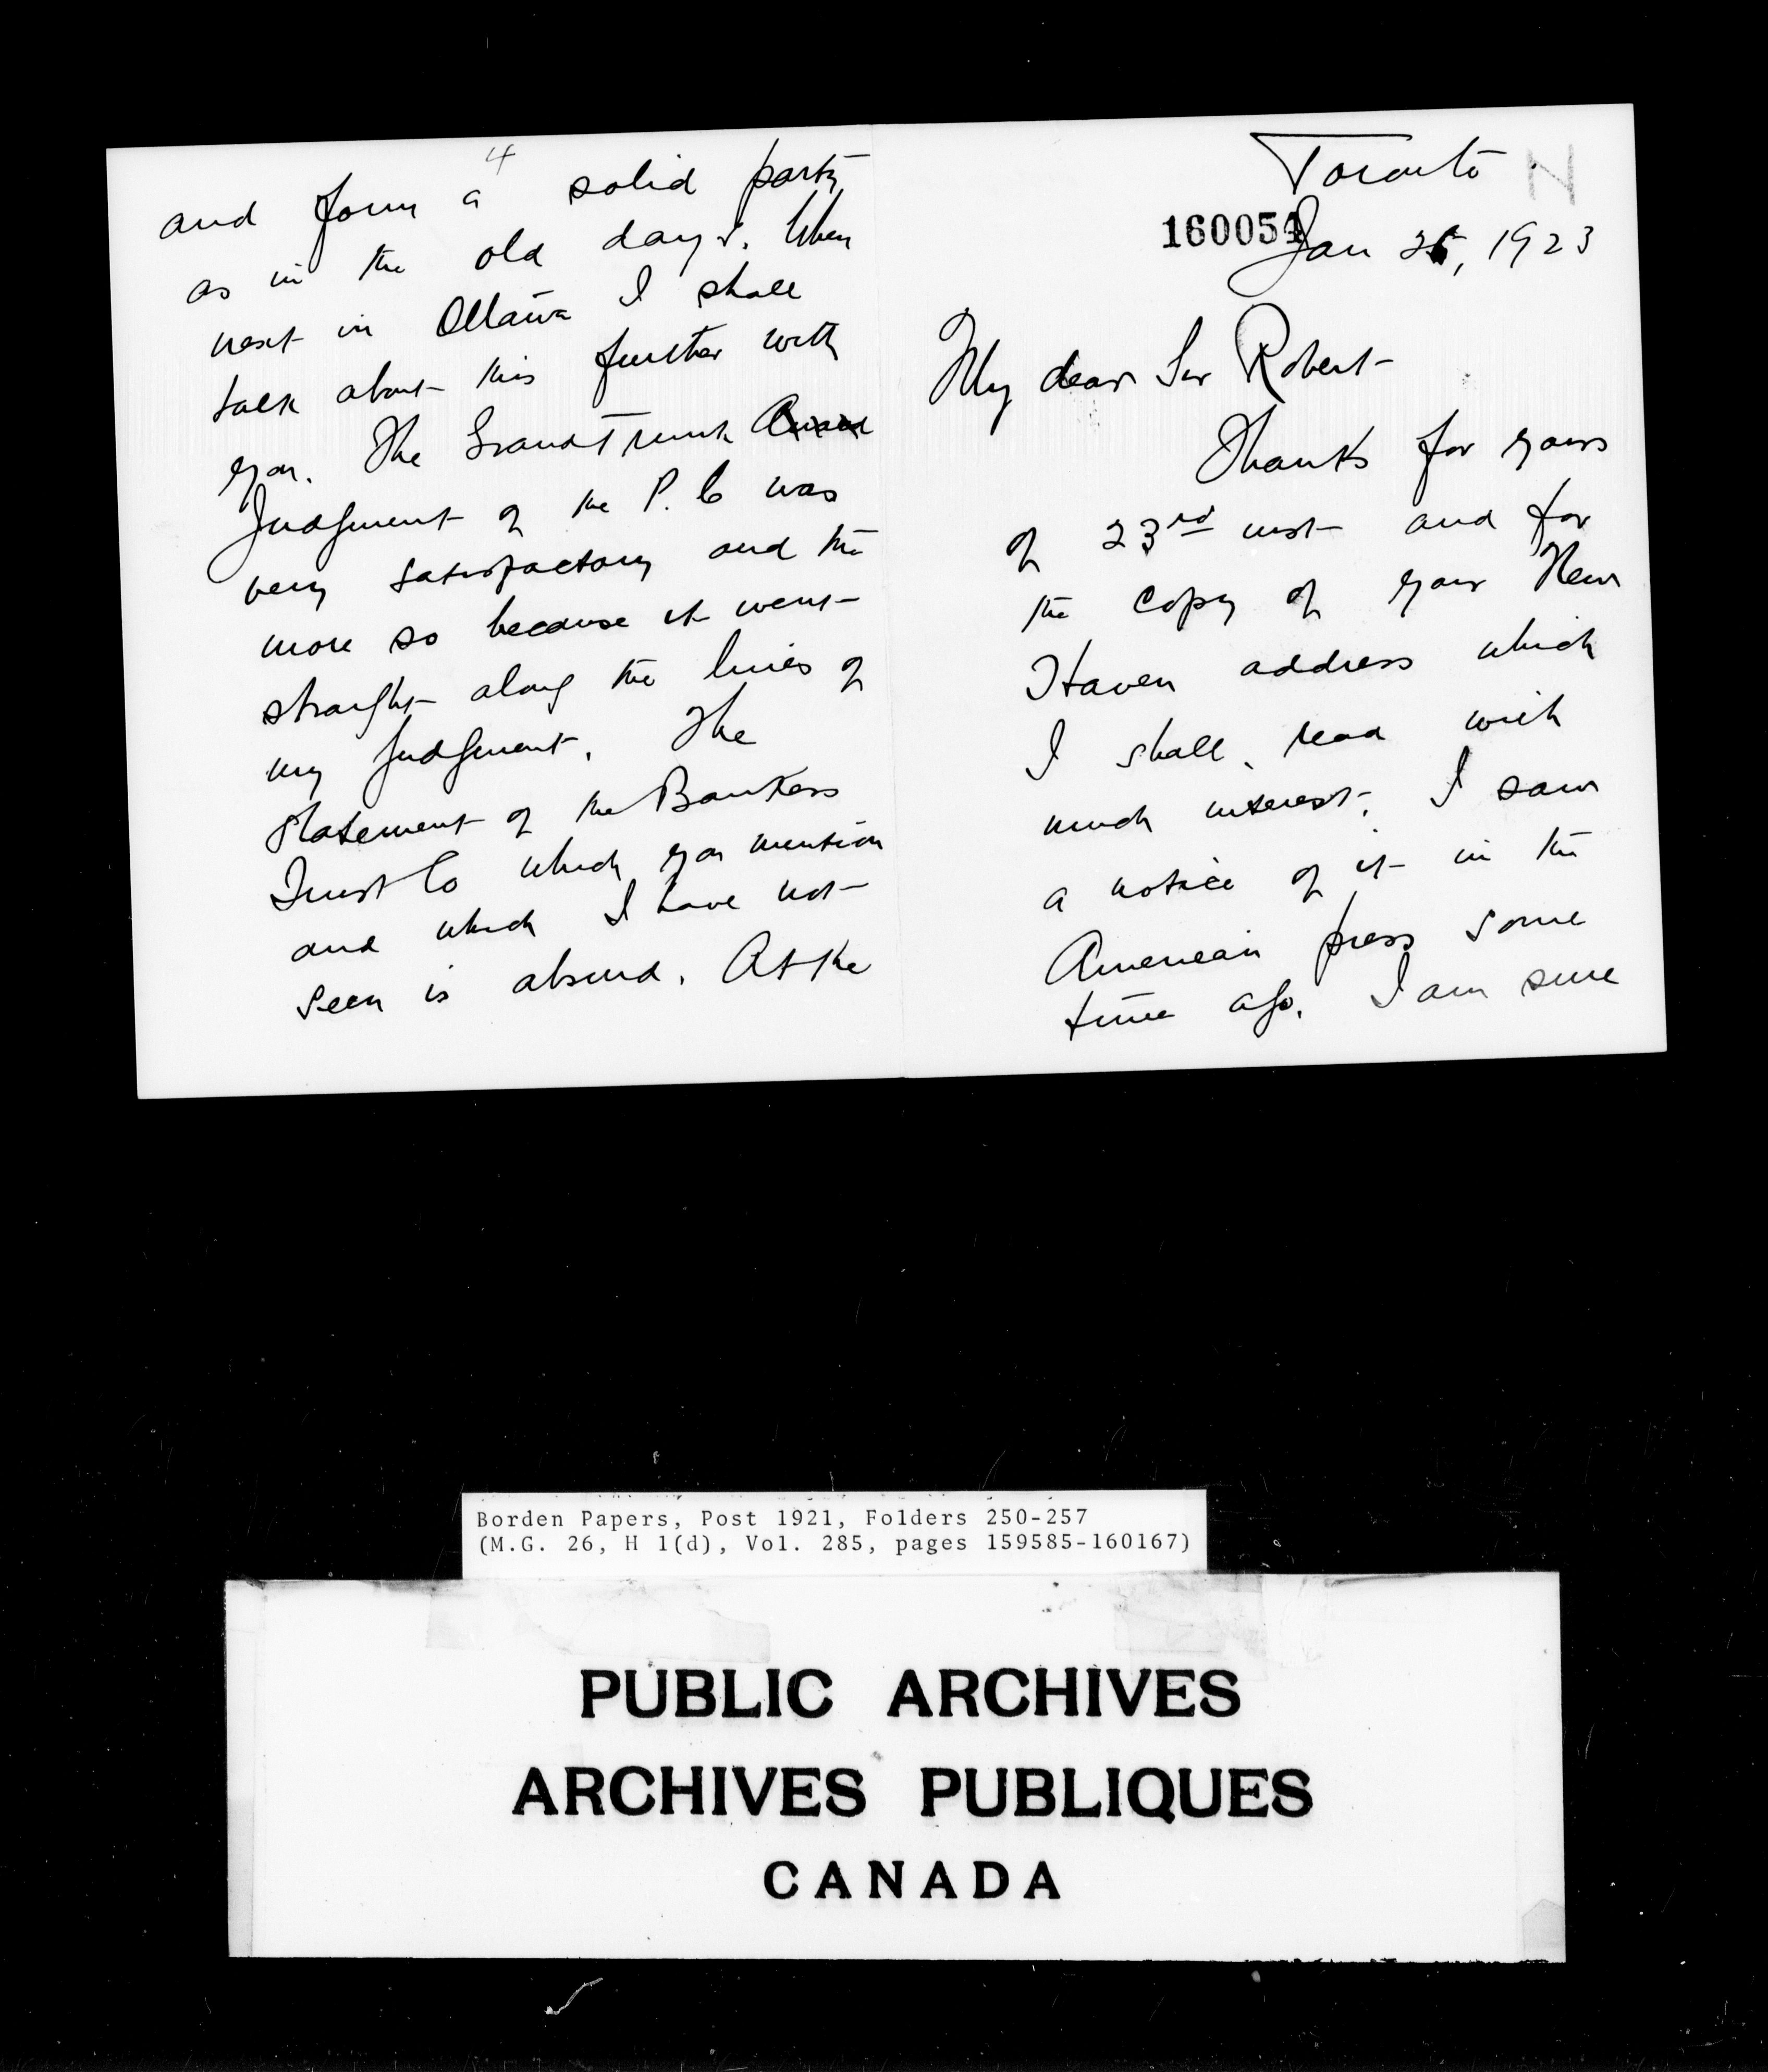 4
and form a solid party
as in the old days. When
next in Ottawa I shall
talk about this further with
you. The Grand Trunk
Judgment of the P.C was
very satisfactory and the
more so because it went
straight along the lines of
my judgment. The
statement of the Bankers
Trust Co which you mention
and which I have not
seen is absurd. At the
Toronto
N
160054
Jan 25, 1923
My dear Sir Robert
Thanks for yours
of 23rd inst and for
the copy of your New
Haven address which
I shall read with
much interest. I saw
a notice of it in the
American press some
time ago. I am sure
Borden Papers, Post 1921, Folders 250-257
(M.G. 26, H 1(d), Vol. 285, pages 159585-160167)
PUBLIC ARCHIVES
ARCHIVES PUBLIQUES
CANADA